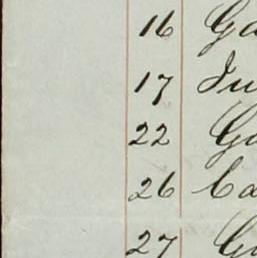 16 Ga
17 Ju
22 Ga
26 Ca
27 Ga